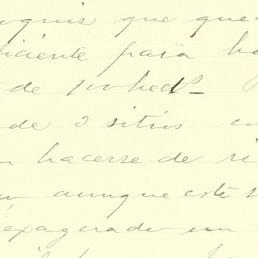 oquis que que
ficiente para ha
de 100 hect^s
de 3 sitios co
hacerse de ri
aunque este s
exagerado un